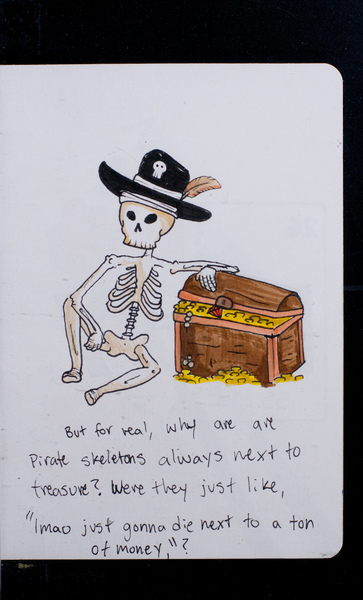 But for real, why are are
Pirate skeletons always next to
treasure? Were they just like,
"lmao just gonna die next to a ton
of money,"?